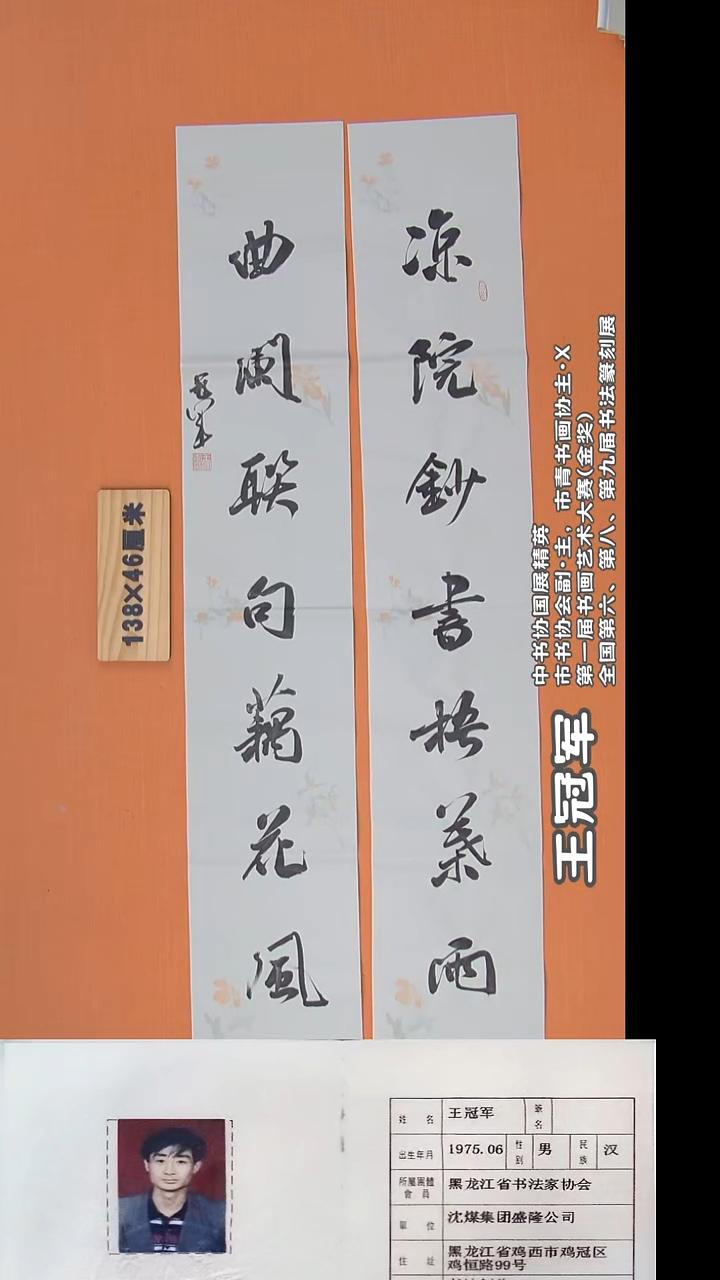 凉院鈔書梧葉雨
曲闌聯句藕花風
冠軍
138×46厘米
中书协国展精英
市书协会副·主，市青书画协主·X
第一届书画艺术大赛(金奖)
全国第六、第八、第九届书法篆刻展
王冠军
姓 名 王冠军 筆名
出生年月 1975.06 性别 男 民族 汉
所屬團體會員 黑龙江省书法家协会
單 位 沈煤集团盛隆公司
住 址 黑龙江省鸡西市鸡冠区
鸡恒路99号